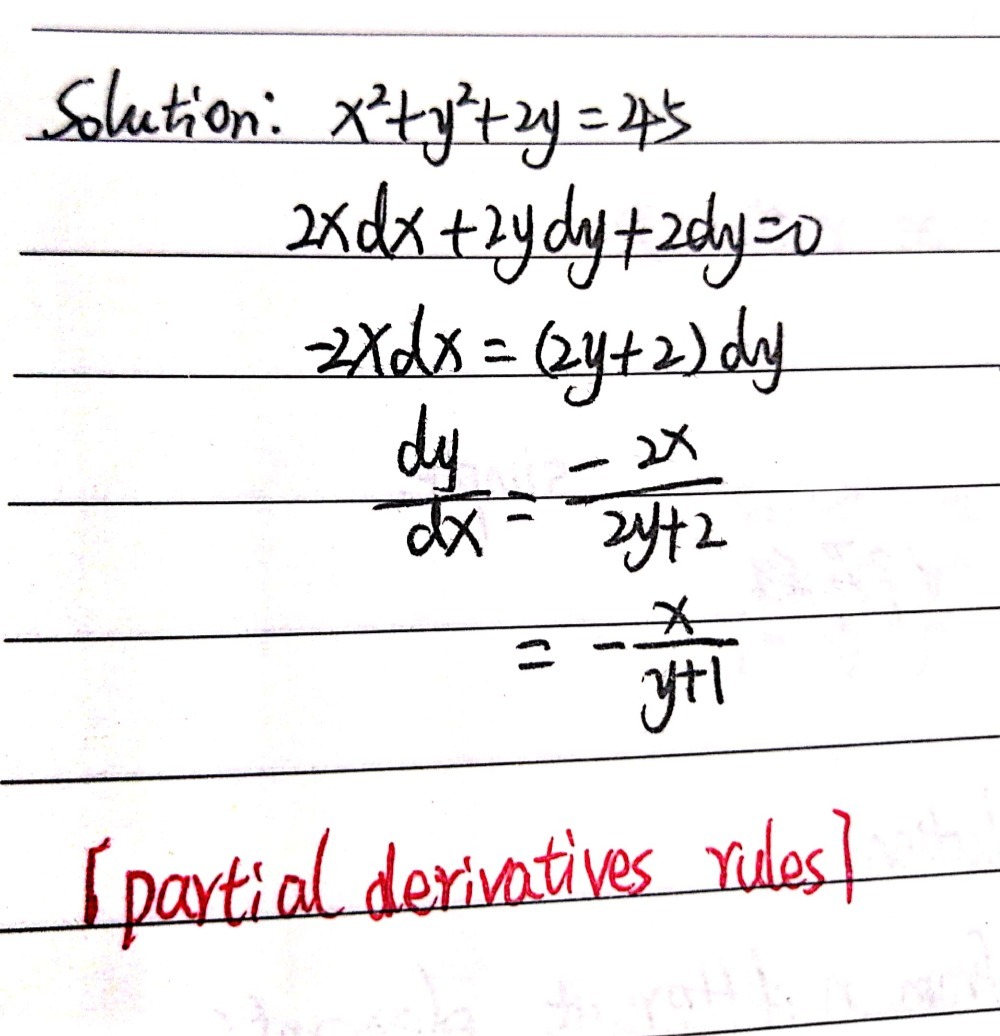 Solution: x²+y²+2y=45
2xdx+2ydy+2dy=0
-2xdx=(2y+2)dy
dy/dx = -2x/2y+2
= -x/y+1
[partial derivatives rules]